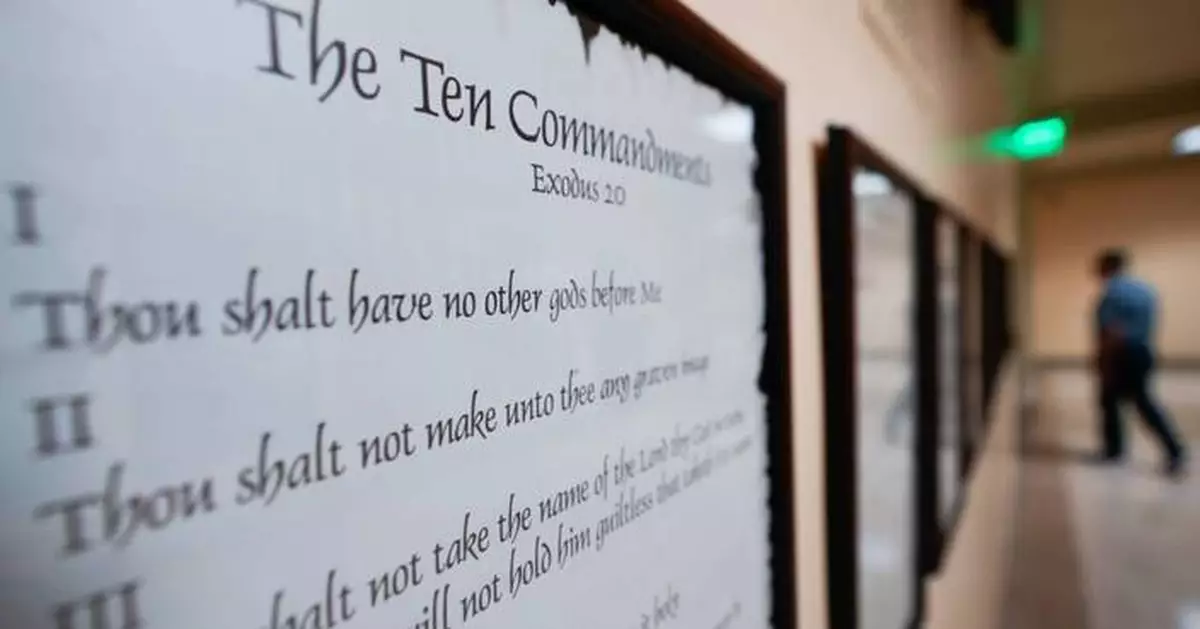 The Ten Commandments
Exodus 20
I
Thou shalt have no other gods before Me
II
Thou shalt not make unto thee any graven image
III
shalt not take the name of the Lord thy God
will not hold him guiltless that taketh
holy